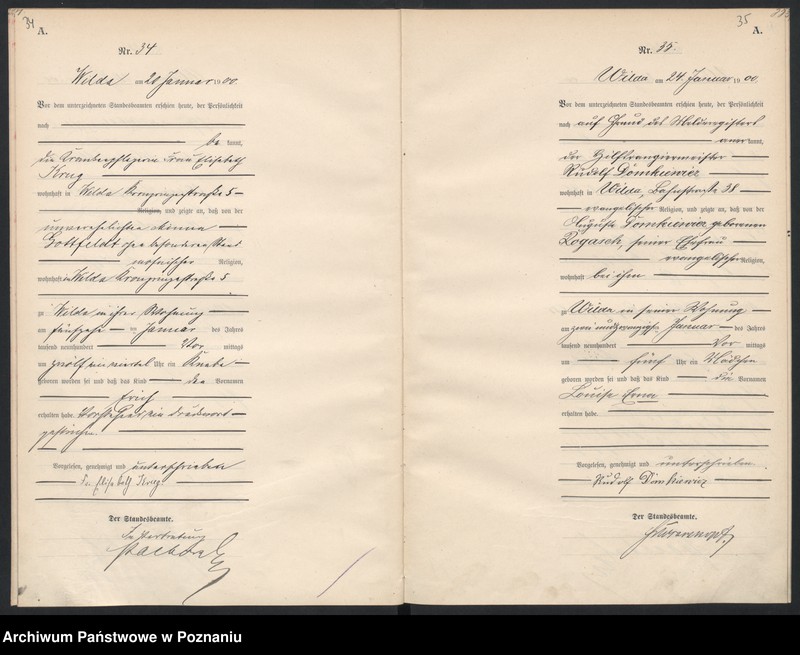 34
A.
Nr. 34
Wilda am 20 Januar 1900
Vor dem unterzeichneten Standesbeamten erschien heute, der Persönlichkeit
nach
be kannt,
die Krankenpflegerin Frau Elisabeth
Krug
wohnhaft in Wilda Kronprinzenstraße 5
Religion, und zeigte an, daß von der
unverehelichten
Gottfeldt ohne besonderen Stand
mosaischer Religion,
wohnhaft in Wilda Kronprinzenstraße 5
zu Wilda in ihrer Wohnung
am Januar des Jahres
tausend neunhundert Vor mittags
um zwölf ein viertel Uhr ein Knabe
geboren worden sei und daß das Kind den Vornamen
Erich
erhalten habe. Vorstehend ein Druckwort
gestrichen.
Vorgelesen, genehmigt und unterschrieben
Elisabeth Krug
Der Standesbeamte.
In Vertretung
35
A.
Nr. 35
Wilda am 24. Januar 1900.
Vor dem unterzeichneten Standesbeamten erschien heute, der Persönlichkeit
nach auf Grund des Melderegisters
aner kannt,
der Hilfsrangiermeister
Rudolf Domkiewicz
wohnhaft in Wilda, Bahnstraße 38
evangelischer Religion, und zeigte an, daß von der
Auguste Domkiewicz geborenen
Rogasch, seiner Ehefrau
evangelischer Religion,
wohnhaft bei ihm
zu Wilda in seiner Wohnung
am zwei und zwanzigsten Januar des Jahres
tausend neunhundert Vor mittags
um fünf Uhr ein Mädchen
geboren worden sei und daß das Kind die Vornamen
Louise Erna
erhalten habe.
Vorgelesen, genehmigt und unterschrieben.
Rudolf Domkiewicz
Der Standesbeamte.
Archiwum Państwowe w Poznaniu